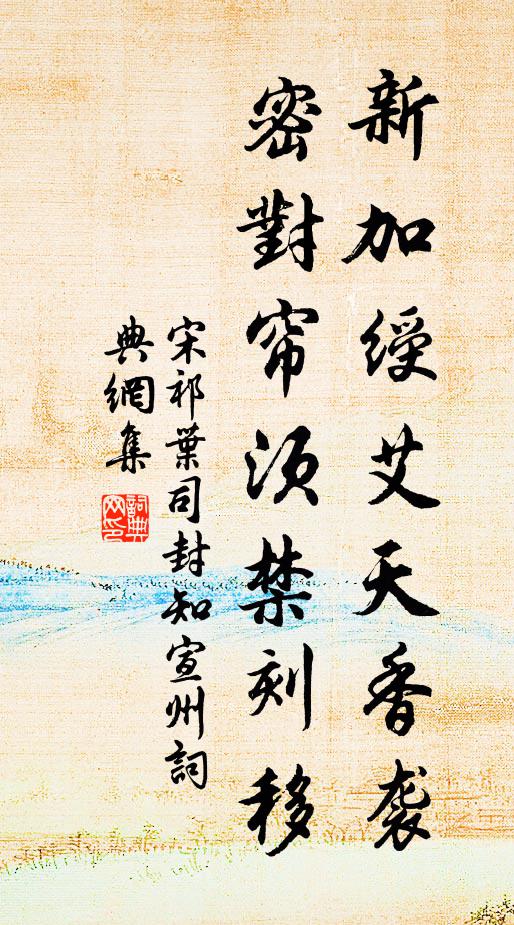 新加綬艾天香袭
密對帘须禁刻移
宋祁葉司封知宣州詞
典網集
詞典
网印